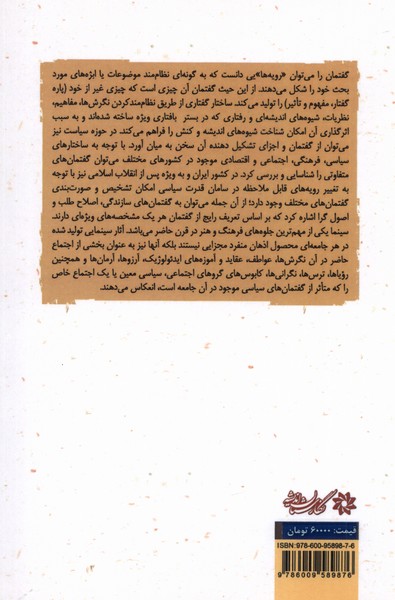 گفتمان را می‌توان «رویه‌ها»یی دانست که به گونه‌ای نظام‌مند موضوعات یا ابژه‌های مورد
بحث خود را شکل می‌دهند. از این حیث گفتمان آن چیزی است که چیزی غیر از خود (پاره
گفتار، مفهوم و تأثیر) را تولید می‌کند. ساختار گفتاری از طریق نظام‌مندکردن نگرش‌ها، مفاهیم،
نظریات، شیوه‌های اندیشه‌ای و رفتاری که در بستر بافتاری ویژه ساخته شده‌اند و به سبب
اثرگذاری آن امکان شناخت شیوه‌های اندیشه و کنش را فراهم می‌کند. در حوزه سیاست نیز
می‌توان از گفتمان و اجزای تشکیل دهنده آن سخن به میان آورد. با توجه به ساختارهای
سیاسی، فرهنگی، اجتماعی و اقتصادی موجود در کشورهای مختلف می‌توان گفتمان‌های
متفاوتی را شناسایی و بررسی کرد. در کشور ایران و به ویژه پس از انقلاب اسلامی نیز با توجه
به تغییر رویه‌های قابل ملاحظه در سامان قدرت سیاسی امکان تشخیص و صورت‌بندی
گفتمان‌های مختلف وجود دارد؛ از آن جمله می‌توان به گفتمان‌های سازندگی، اصلاح طلب و
اصول گرا اشاره کرد که بر اساس تعریف رایج از گفتمان هر یک مشخصه‌های ویژه‌ای دارند.
سینما یکی از مهم‌ترین جلوه‌های فرهنگ و هنر در قرن حاضر می‌باشد. آثار سینمایی تولید شده
در هر جامعه‌ای محصول اذهان منفرد مجزایی نیستند بلکه آنها نیز به عنوان بخشی از اجتماع
حاضر در آن نگرش‌ها، عواطف، عقاید و آموزه‌های ایدئولوژیک، آرزوها، آرمان‌ها و همچنین
رؤیاها، ترس‌ها، نگرانی‌ها، کابوس‌های گروهای اجتماعی، سیاسی معین یا یک اجتماع خاص
را که متأثر از گفتمان‌های سیاسی موجود در آن جامعه است، انعکاس می‌دهند.
قیمت: ۶۰۰۰۰ تومان
ISBN: 978-600-95898-7-6
9 786009 589876